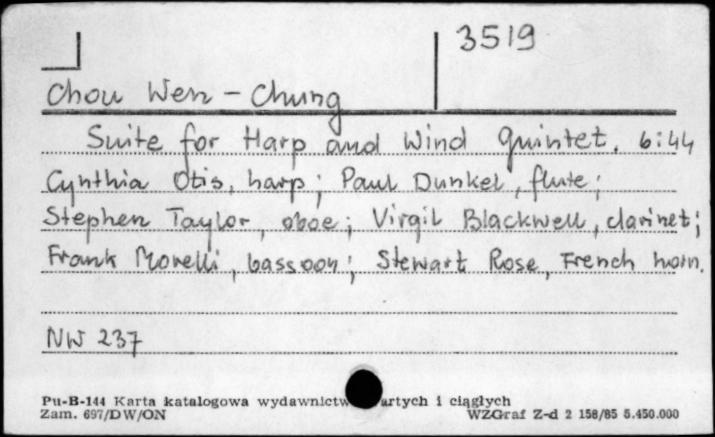 3519
Chou Wen-Chung
Suite for Harp and Wind Quintet. 6:44
Cynthia Otis, harp; Paul Dunkel, flute;
Stephen Taylor, oboe; Virgil Blackwell, clarinet;
Frank Morelli, bassoon; Stewart Rose, French horn.
NW 237
Pu-B-144 Karta katalogowa wydawnictw artych i ciągłych
Zam. 697/DW/ON WZGraf Z-d 2 158/85 5.450.000